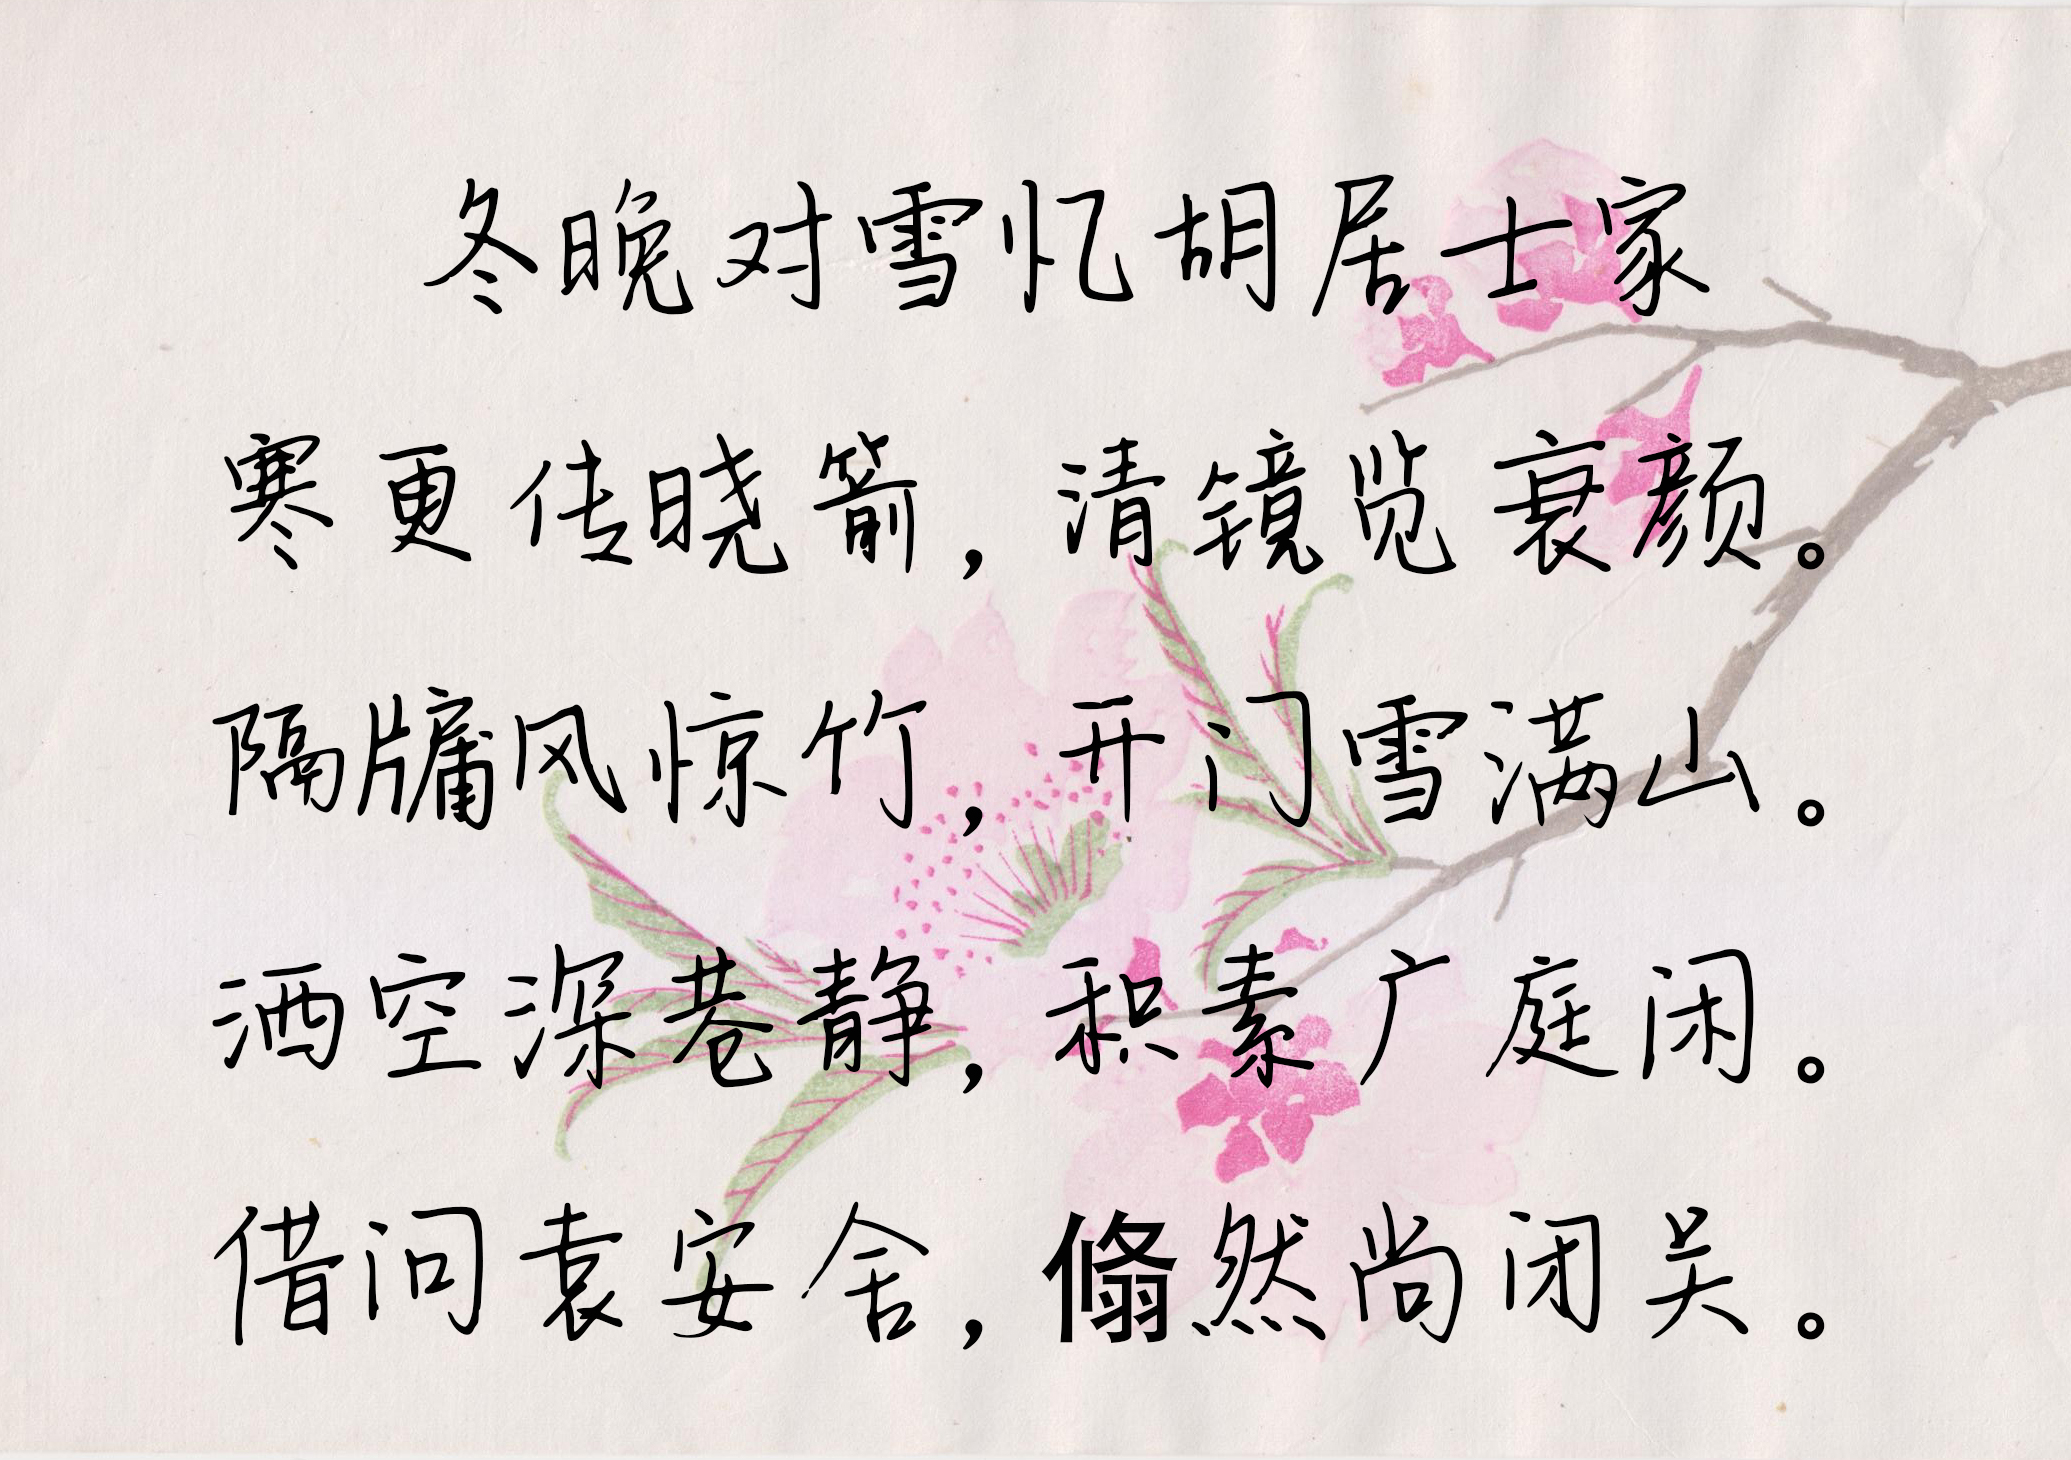 冬晚对雪忆胡居士家
寒更传晓箭，清镜览衰颜。
隔牖风惊竹，开门雪满山。
洒空深巷静，积素广庭闲。
借问袁安舍，翛然尚闭关。